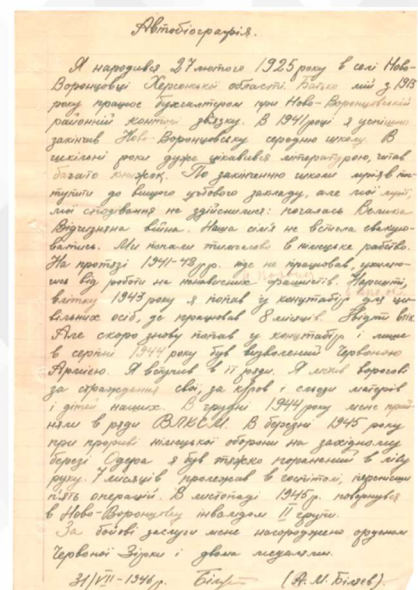 Автобіографія.
Я народився 27 лютого 1925 року в селі Ново-
Воронцовці Херсонської області. Батько мій з 1913
року працює бухгалтером при Ново-Воронцовській
районній конторі зв'язку. В 1941 році я успішно
закінчив Ново-Воронцовську середню школу. В
шкільні роки дуже цікавився літературою, читав
багато книжок. По закінченню школи мріяв по-
тупити до вищого учбового закладу, але мої мрії,
мої сподівання не здійснилися: почалась Велика
Вітчизняна війна. Наша сім'я не встигла евакую-
ватись. Ми попали тимчасово в німецьке рабство.
На протязі 1941-43 р.р. ніде не працював, ухиляю-
чись від роботи на ненависних фашистів. Нарешті,
влітку 1943 року я попав у концтабір для ци-
вільних осіб, де працював 8 місяців. Звідти втік.
Але скоро знову попав у концтабір і лише
в серпні 1944 року був визволений Червоною
Армією. Я вступив в її ряди. Я мстив ворогові
за страждання свої, за кров і сльози матерів
і дітей наших. В грудні 1944 року мене прий-
няли в ряди ВЛКСМ. В березні 1945 року
при прориві німецької оборони на західному
березі Одера я був тяжко поранений в ліву
руку. 7 місяців пролежав в госпіталі, перенісши
п'ять операцій. В листопаді 1945 р. повернувся
в Ново-Воронцовку інвалідом II групи.
За бойові заслуги мене нагороджено орденом
Червоної Зірки і двома медалями.
31/VII-1946р. (А. М. Біляєв).